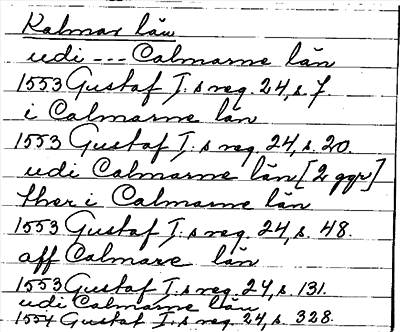 Kalmar län
udi --- Calmarne län
1553 Gustaf I.s reg. 24, s. 7.
i Calmarne län
1553 Gustaf I.s reg. 24, s. 20.
udi Calmarne län [2 ggr]
ther i Calmarne län
1553 Gustaf I.s reg. 24, s. 48.
aff Calmare län
1553 Gustaf I.s reg. 24, s. 131.
udi Calmarne län
1554 Gustaf I.s reg. 24, s. 328.